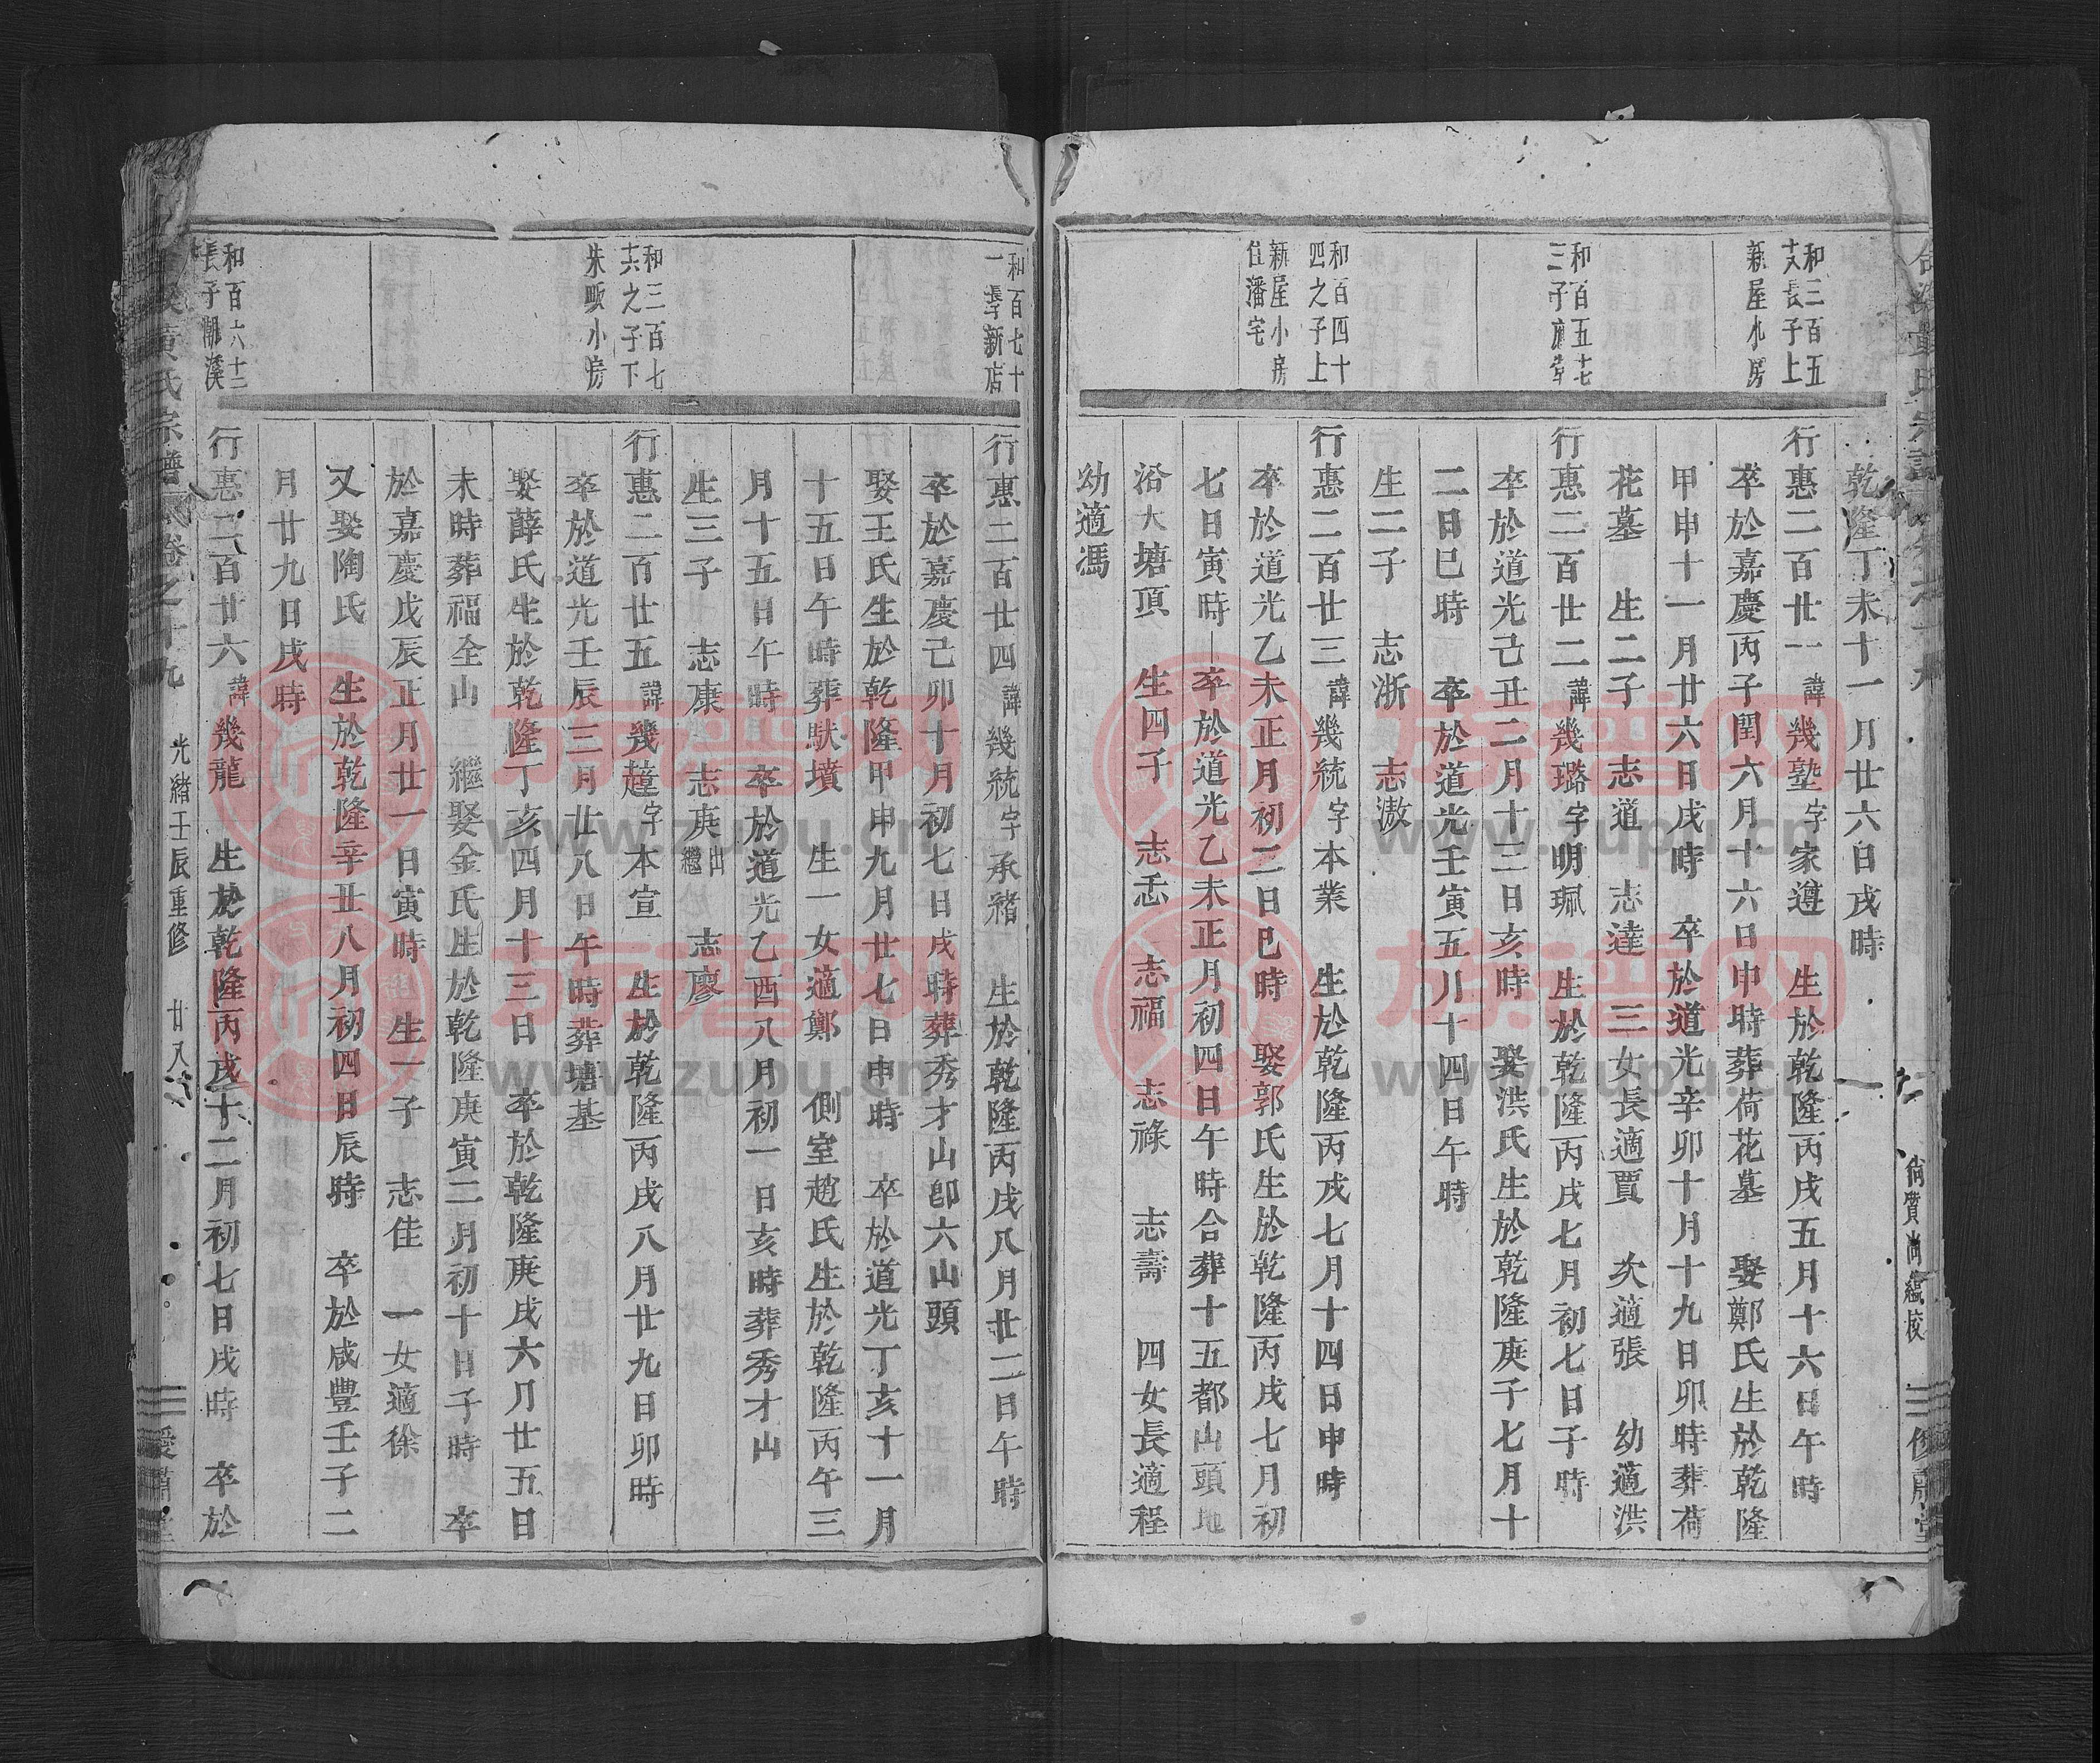 尙質尙絅校
乾隆丁未十一月廿六日戌時
和三百五
十又長子上
新屋小房
行惠二百廿一諱幾塾字家遵 生於乾隆丙戌五月十六日午時
卒於嘉慶丙子閏六月十六日申時葬荷花墓 娶鄭氏生於乾隆
甲申十一月廿六日戌時 卒於道光辛卯十月十九日卯時葬荷
花墓 生二子 志道 志達 三女長適賈 次適張 幼適洪
和百五十七
三子
行惠二百廿二諱幾璐字明珮 生於乾隆丙戌七月初七日子時
卒於道光己丑二月十三日亥時 娶洪氏生於乾隆庚子七月十
二日巳時 卒於道光壬寅五月十四日午時
生二子 志浙 志滶
和百四十
四之子上
新屋小房
住潘宅
行惠二百廿三諱幾統字本業 生於乾隆丙戌七月十四日申時
卒於道光乙未正月初二日巳時 娶郭氏生於乾隆丙戌七月初
七日寅時 卒於道光乙未正月初四日午時合葬十五都山頭地
沿大塘頂 生四子 志忎 志福 志祿 志壽 四女長適程
幼適馮
和百七十
一長子新店
行惠二百廿四諱幾統字承緒 生於乾隆丙戌八月廿二日午時
卒於嘉慶己卯十月初七日戌時葬秀才山卽六山頭
娶王氏生於乾隆甲申九月廿七日申時 卒於道光丁亥十一月
十五日午時葬䭾墳 生一女適鄭 側室趙氏生於乾隆丙午三
月十五日午時 卒於道光乙酉八月初一日亥時葬秀才山
生三子 志康 志庚出繼 志廖
和三百七
十六之子下
朱畈小房
行惠二百廿五諱幾薘字本宣 生於乾隆丙戌八月廿九日卯時
卒於道光壬辰三月廿八日午時葬塘基
娶薛氏生於乾隆丁亥四月十三日 卒於乾隆庚戌六月廿五日
未時葬福全山 繼娶金氏生於乾隆庚寅二月初十日子時 卒
於嘉慶戊辰正月廿一日寅時 生一子 志佳 一女適徐
又娶陶氏 生於乾隆辛丑八月初四日辰時 卒於咸豐壬子二
月廿九日戌時
和百六十二
長子鵬溪
行惠二百廿六諱幾龍 生於乾隆丙戌十二月初七日戌時 卒於
黃氏宗譜 卷之十九 光緖壬辰重修 廿八